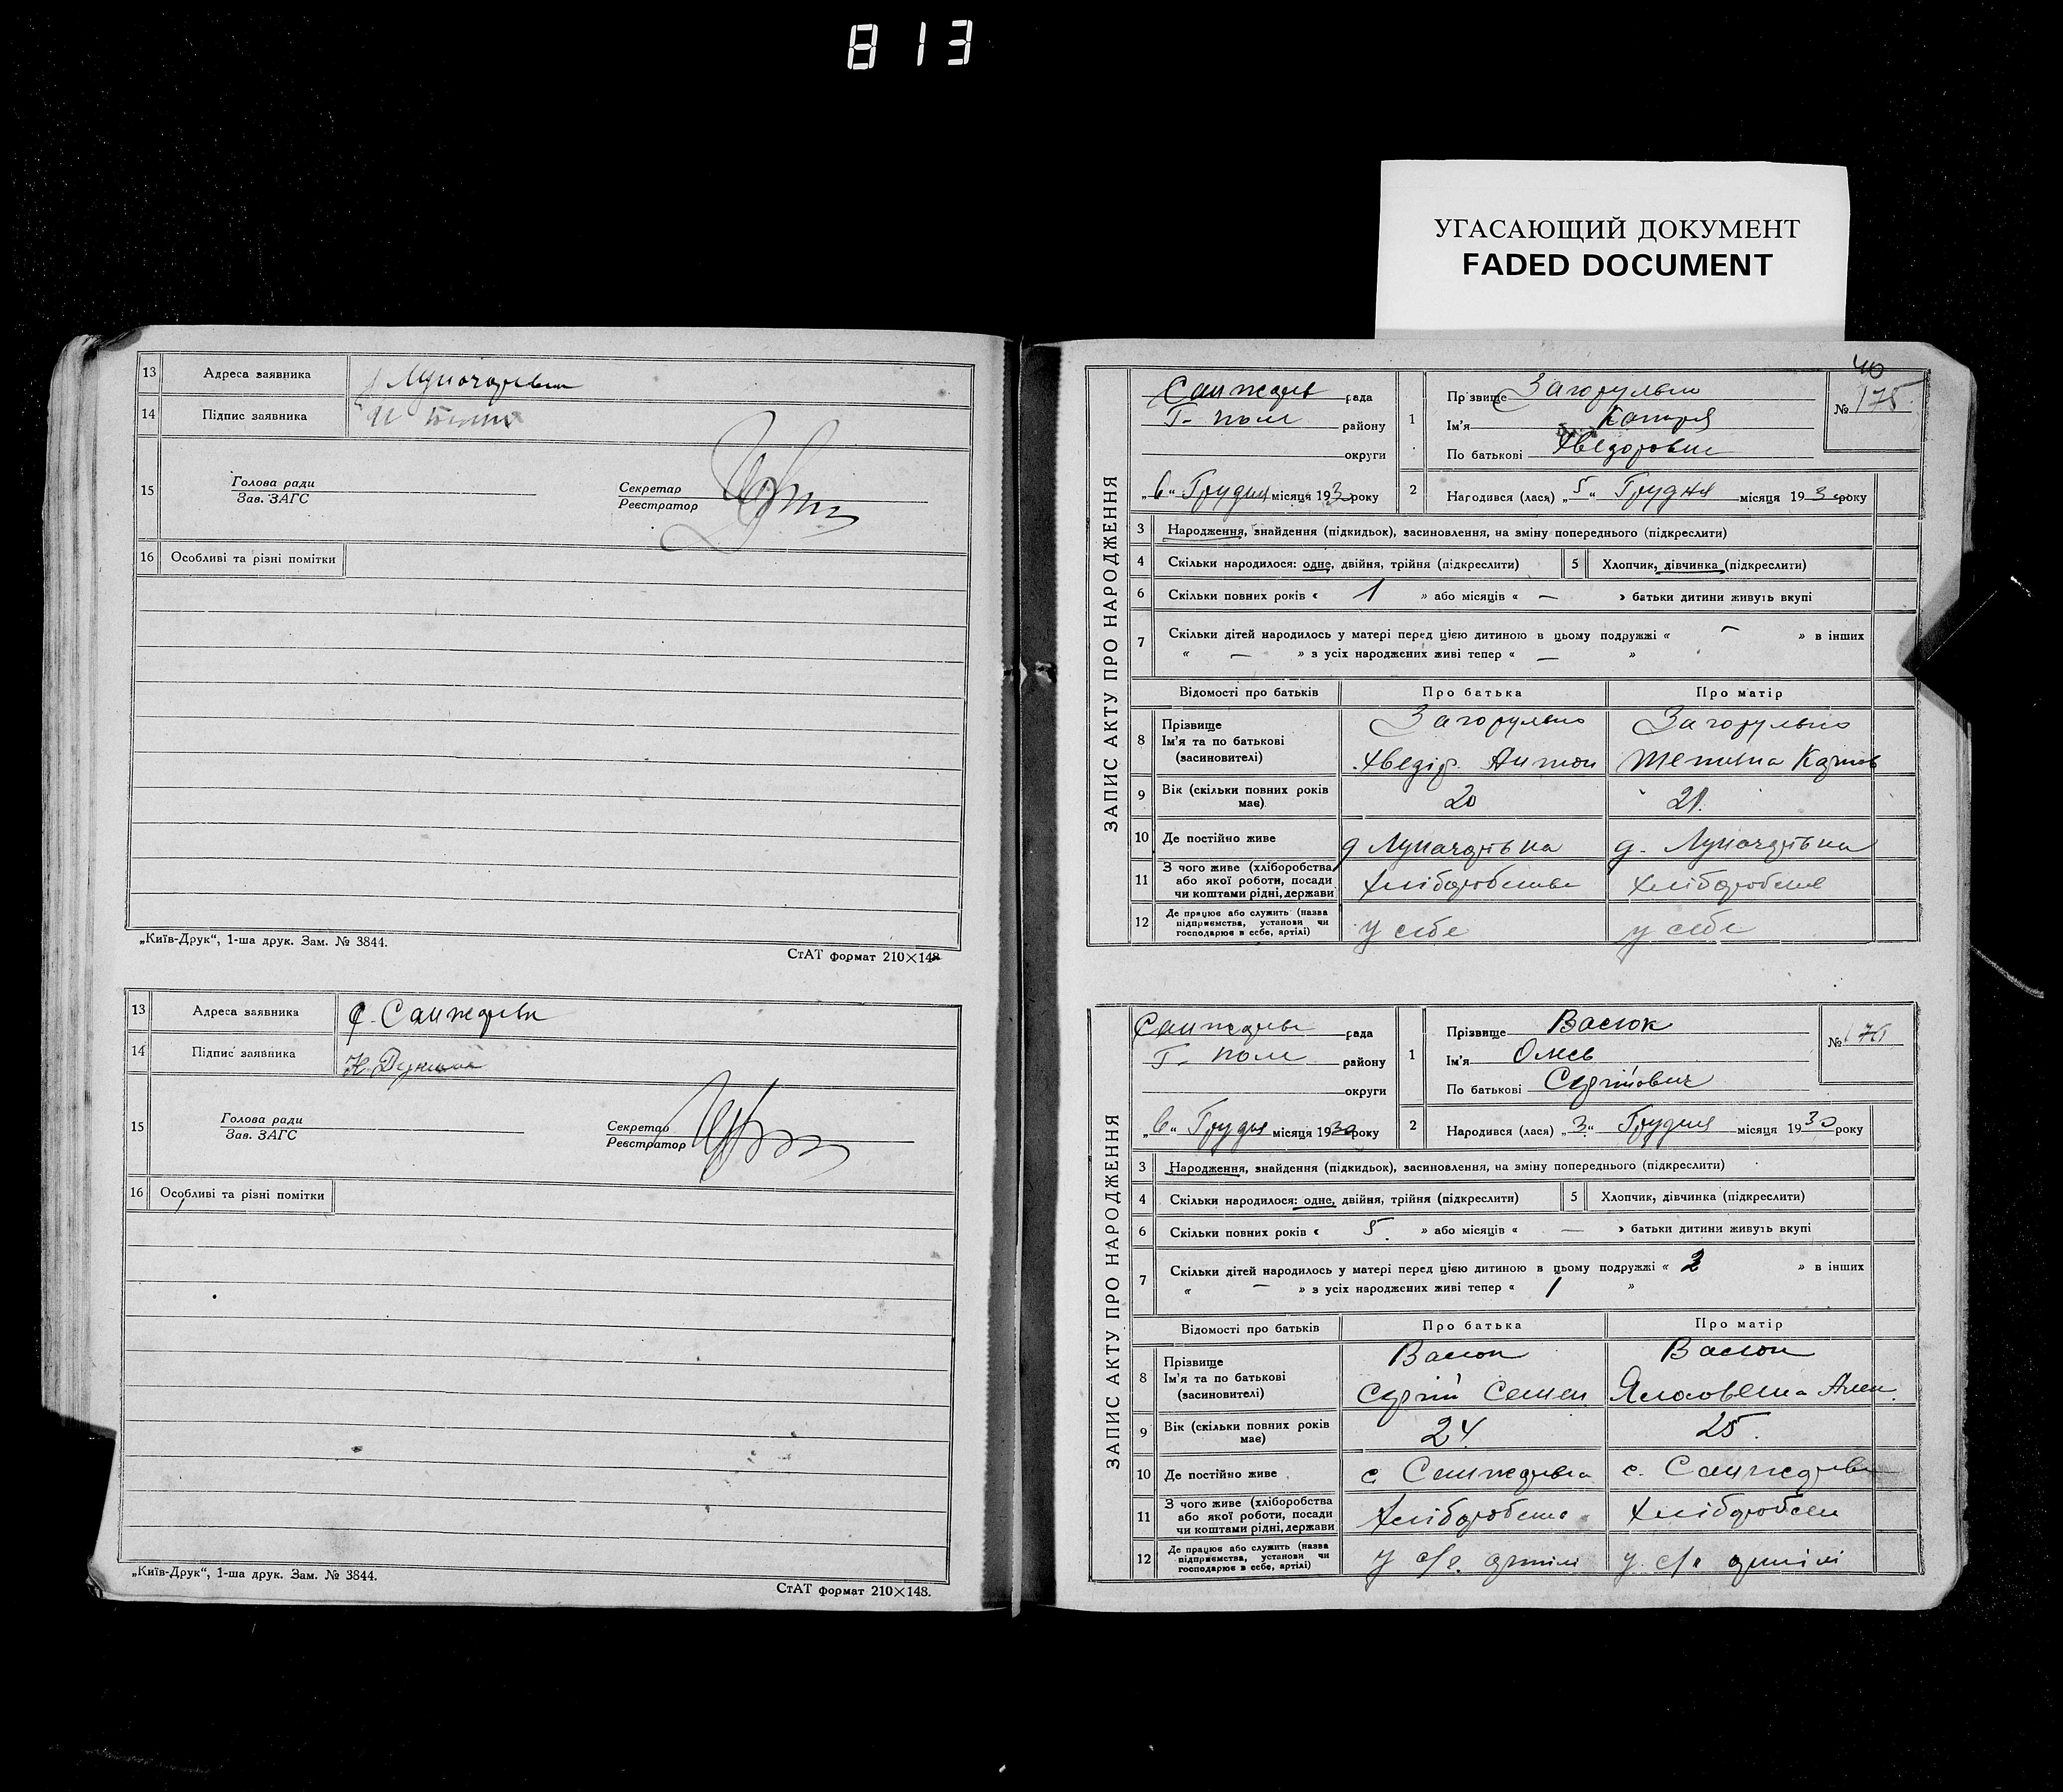 813
УГАСАЮЩИЙ ДОКУМЕНТ
FADED DOCUMENT
13 Адреса заявника
14 Підпис заявника
15 Голова ради
Зав. ЗАГС
Секретар
Реєстратор
16 Особливі та різні помітки
„Київ-Друк“, 1-ша друк. Зам. № 3844.
СтАТ формат 210×148
13 Адреса заявника
14 Підпис заявника
15 Голова ради
Зав. ЗАГС
Секретар
Реєстратор
16 Особливі та різні помітки
„Київ-Друк“, 1-ша друк. Зам. № 3844.
СтАТ формат 210×148.
40
ЗАПИС АКТУ ПРО НАРОДЖЕННЯ
рада
району
округи
„6“ Грудня місяця 1930 року
1 Прізвище Загорулько
Ім'я
По батькові
№ 175
2 Народився (лася) „5“ Грудня місяця 1930 року
3 Народження, знайдення (підкидьок), засиновлення, на зміну попереднього (підкреслити)
4 Скільки народилося: одне, двійня, трійня (підкреслити)
5 Хлопчик, дівчинка (підкреслити)
6 Скільки повних років « 1 » або місяців « — » батьки дитини живуть вкупі
7 Скільки дітей народилось у матері перед цією дитиною в цьому подружжі « — » в інших
« — » з усіх народжених живі тепер « — »
Відомості про батьків Про батька Про матір
8 Прізвище Загорулько Загорулько
Ім'я та по батькові
(засиновителі) Хведір Антон
9 Вік (скільки повних років 20 21.
має)
10 Де постійно живе
11 З чого живе (хліборобства
або якої роботи, посади
чи коштами рідні, держави
12 Де працює або служить (назва
підприємства, установи чи у себе у себе
господарює в себе, артілі)
ЗАПИС АКТУ ПРО НАРОДЖЕННЯ
рада
району
округи
„6“ Грудня місяця 1930 року
1 Прізвище Васюк
Ім'я
По батькові Сергійович
№
2 Народився (лася) „3“ Грудня місяця 1930 року
3 Народження, знайдення (підкидьок), засиновлення, на зміну попереднього (підкреслити)
4 Скільки народилося: одне, двійня, трійня (підкреслити)
5 Хлопчик, дівчинка (підкреслити)
6 Скільки повних років « 5. » або місяців « — » батьки дитини живуть вкупі
7 Скільки дітей народилось у матері перед цією дитиною в цьому подружжі « 2 » в інших
« — » з усіх народжених живі тепер « 1 »
Відомості про батьків Про батька Про матір
8 Прізвище Васюк Васюк
Ім'я та по батькові
(засиновителі) Сергій Семен
9 Вік (скільки повних років 24 25.
має)
10 Де постійно живе
11 З чого живе (хліборобства
або якої роботи, посади
чи коштами рідні, держави
12 Де працює або служить (назва
підприємства, установи чи у с/г. артілі у с/г артілі
господарює в себе, артілі)